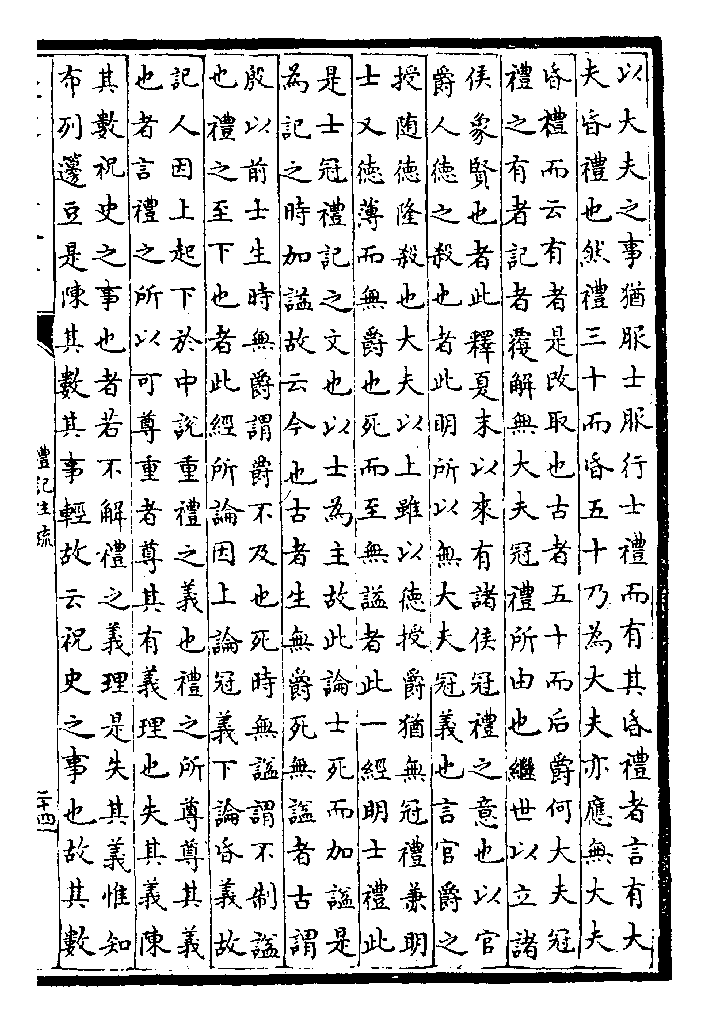 以大夫之事猶服士服行士禮而有其昏禮者言有大
夫昏禮也然禮三十而昏五十乃為大夫亦應無大夫
昏禮而云有者是改取也古者五十而后爵何大夫冠
禮之有者記者覆解無大夫冠禮所由也繼世以立諸
侯象賢也者此釋夏末以來有諸侯冠禮之意也以官
爵人德之殺也者此明所以無大夫冠義也言官爵之
授随德隆殺也大夫以上雖以德授爵猶無冠禮兼明
士又德薄而無爵也死而至無謚者此一經明士禮此
是士冠禮記之文也以士為主故此論士死而加謚是
為記之時加謚故云今也古者生無爵死無謚者古謂
殷以前士生時無爵謂爵不及也死時無謚謂不制謚
也禮之至下也者此經所論因上論冠義下論昏義故
記人因上起下於中說重禮之義也禮之所尊尊其義
也者言禮之所以可尊重者尊其有義理也失其義陳
其數祝史之事也者若不解禮之義理是失其義惟知
布列籩豆是陳其數其事輕故云祝史之事也故其數
禮記注疏
二十四